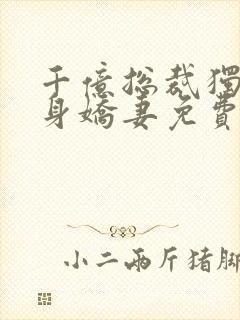 千億總裁獨
身嬌妻免費
小二兩斤猪脚